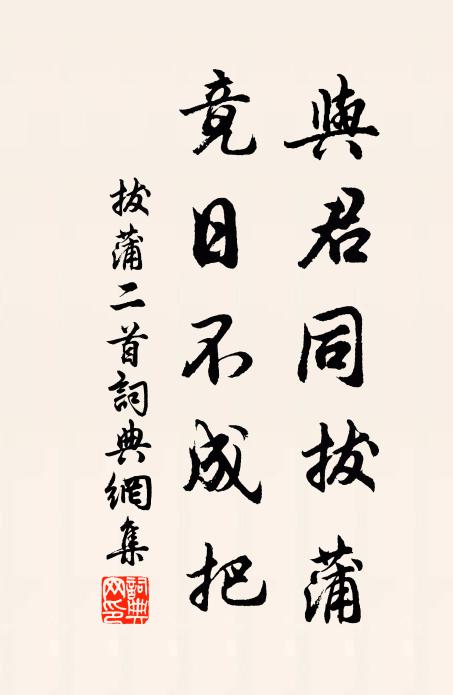 與君同拔蒲
竟日不成把
拔蒲二首詞典網集
詞典網印